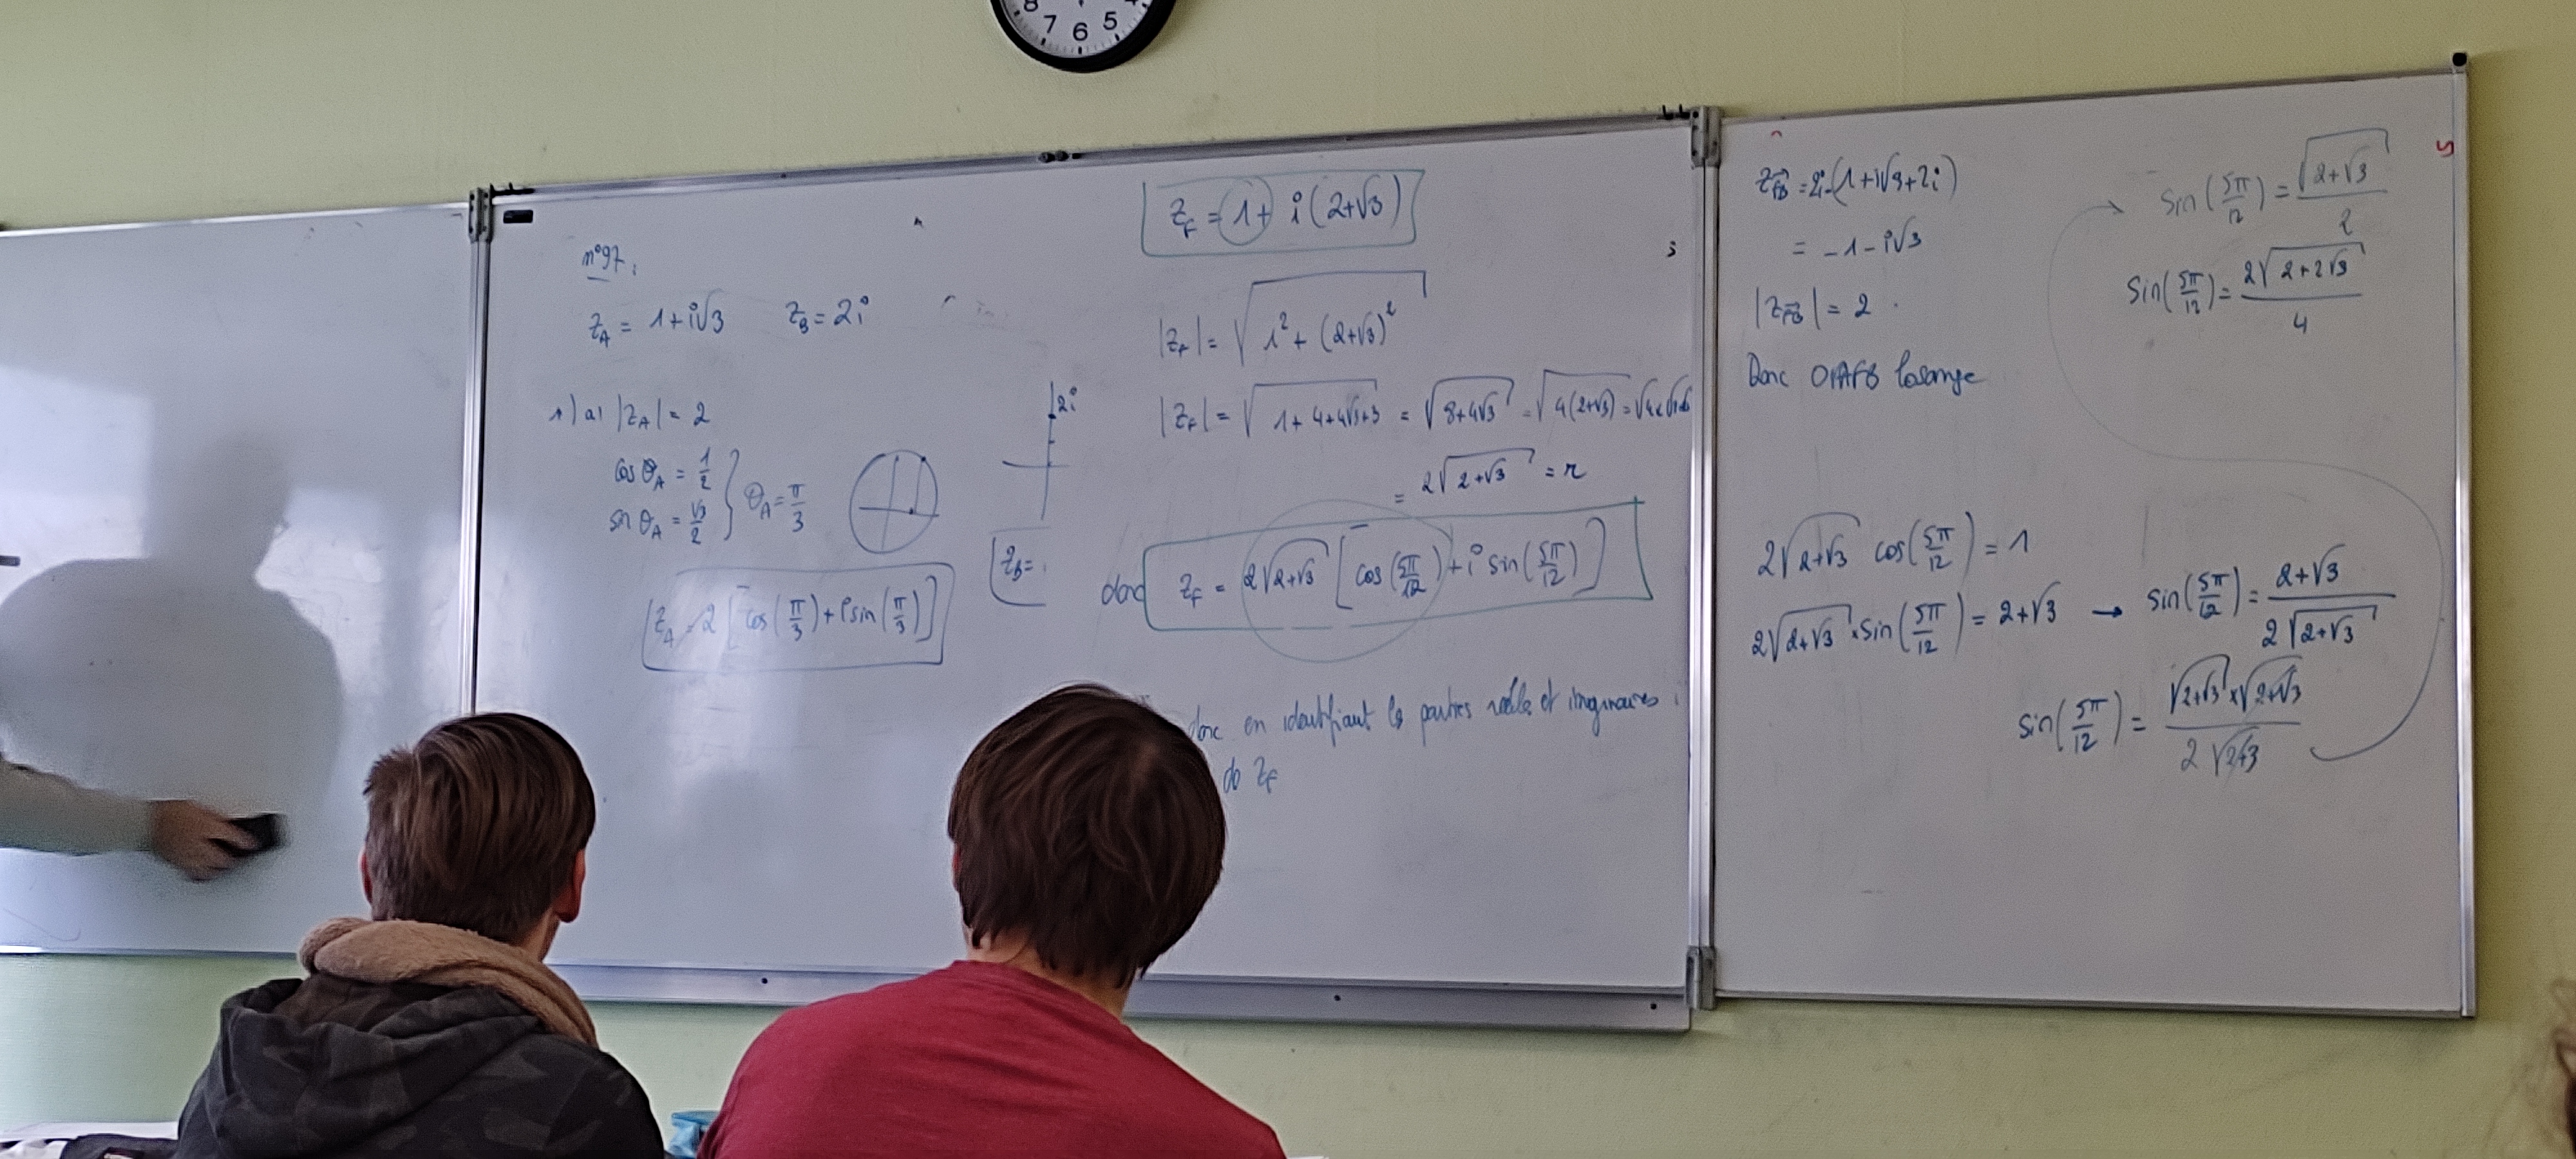 8 7 6 5 4
n°97:
z_A = 1+i√3 z_B = 2i
1) a) |z_A| = 2
cos θ_A = 1/2
sin θ_A = √3/2
} θ_A = π/3
z_A = 2 [cos(π/3) + i sin(π/3)]
2i
z_B =
z_F = 1 + i(2+√3)
|z_F| = √(1² + (2+√3)²)
|z_F| = √(1+4+4√3+3) = √(8+4√3) = √(4(2+√3)) =
= 2√(2+√3) = r
donc z_F = 2√(2+√3) [cos(5π/12) + i sin(5π/12)]
donc en identifiant les parties réelles et imaginaires
de z_F
z_FB = 2i-(1+i√3+2i)
= -1-i√3
|z_FB| = 2
Donc OAFB losange
2√(2+√3) cos(5π/12) = 1
2√(2+√3) × sin(5π/12) = 2+√3 → sin(5π/12) = (2+√3)/(2√(2+√3))
sin(5π/12) = (√(2+√3) × √(2+√3))/(2√(2+√3))
sin(5π/12) = √(2+√3)/2
sin(5π/12) = 2√(2+2√3)/4